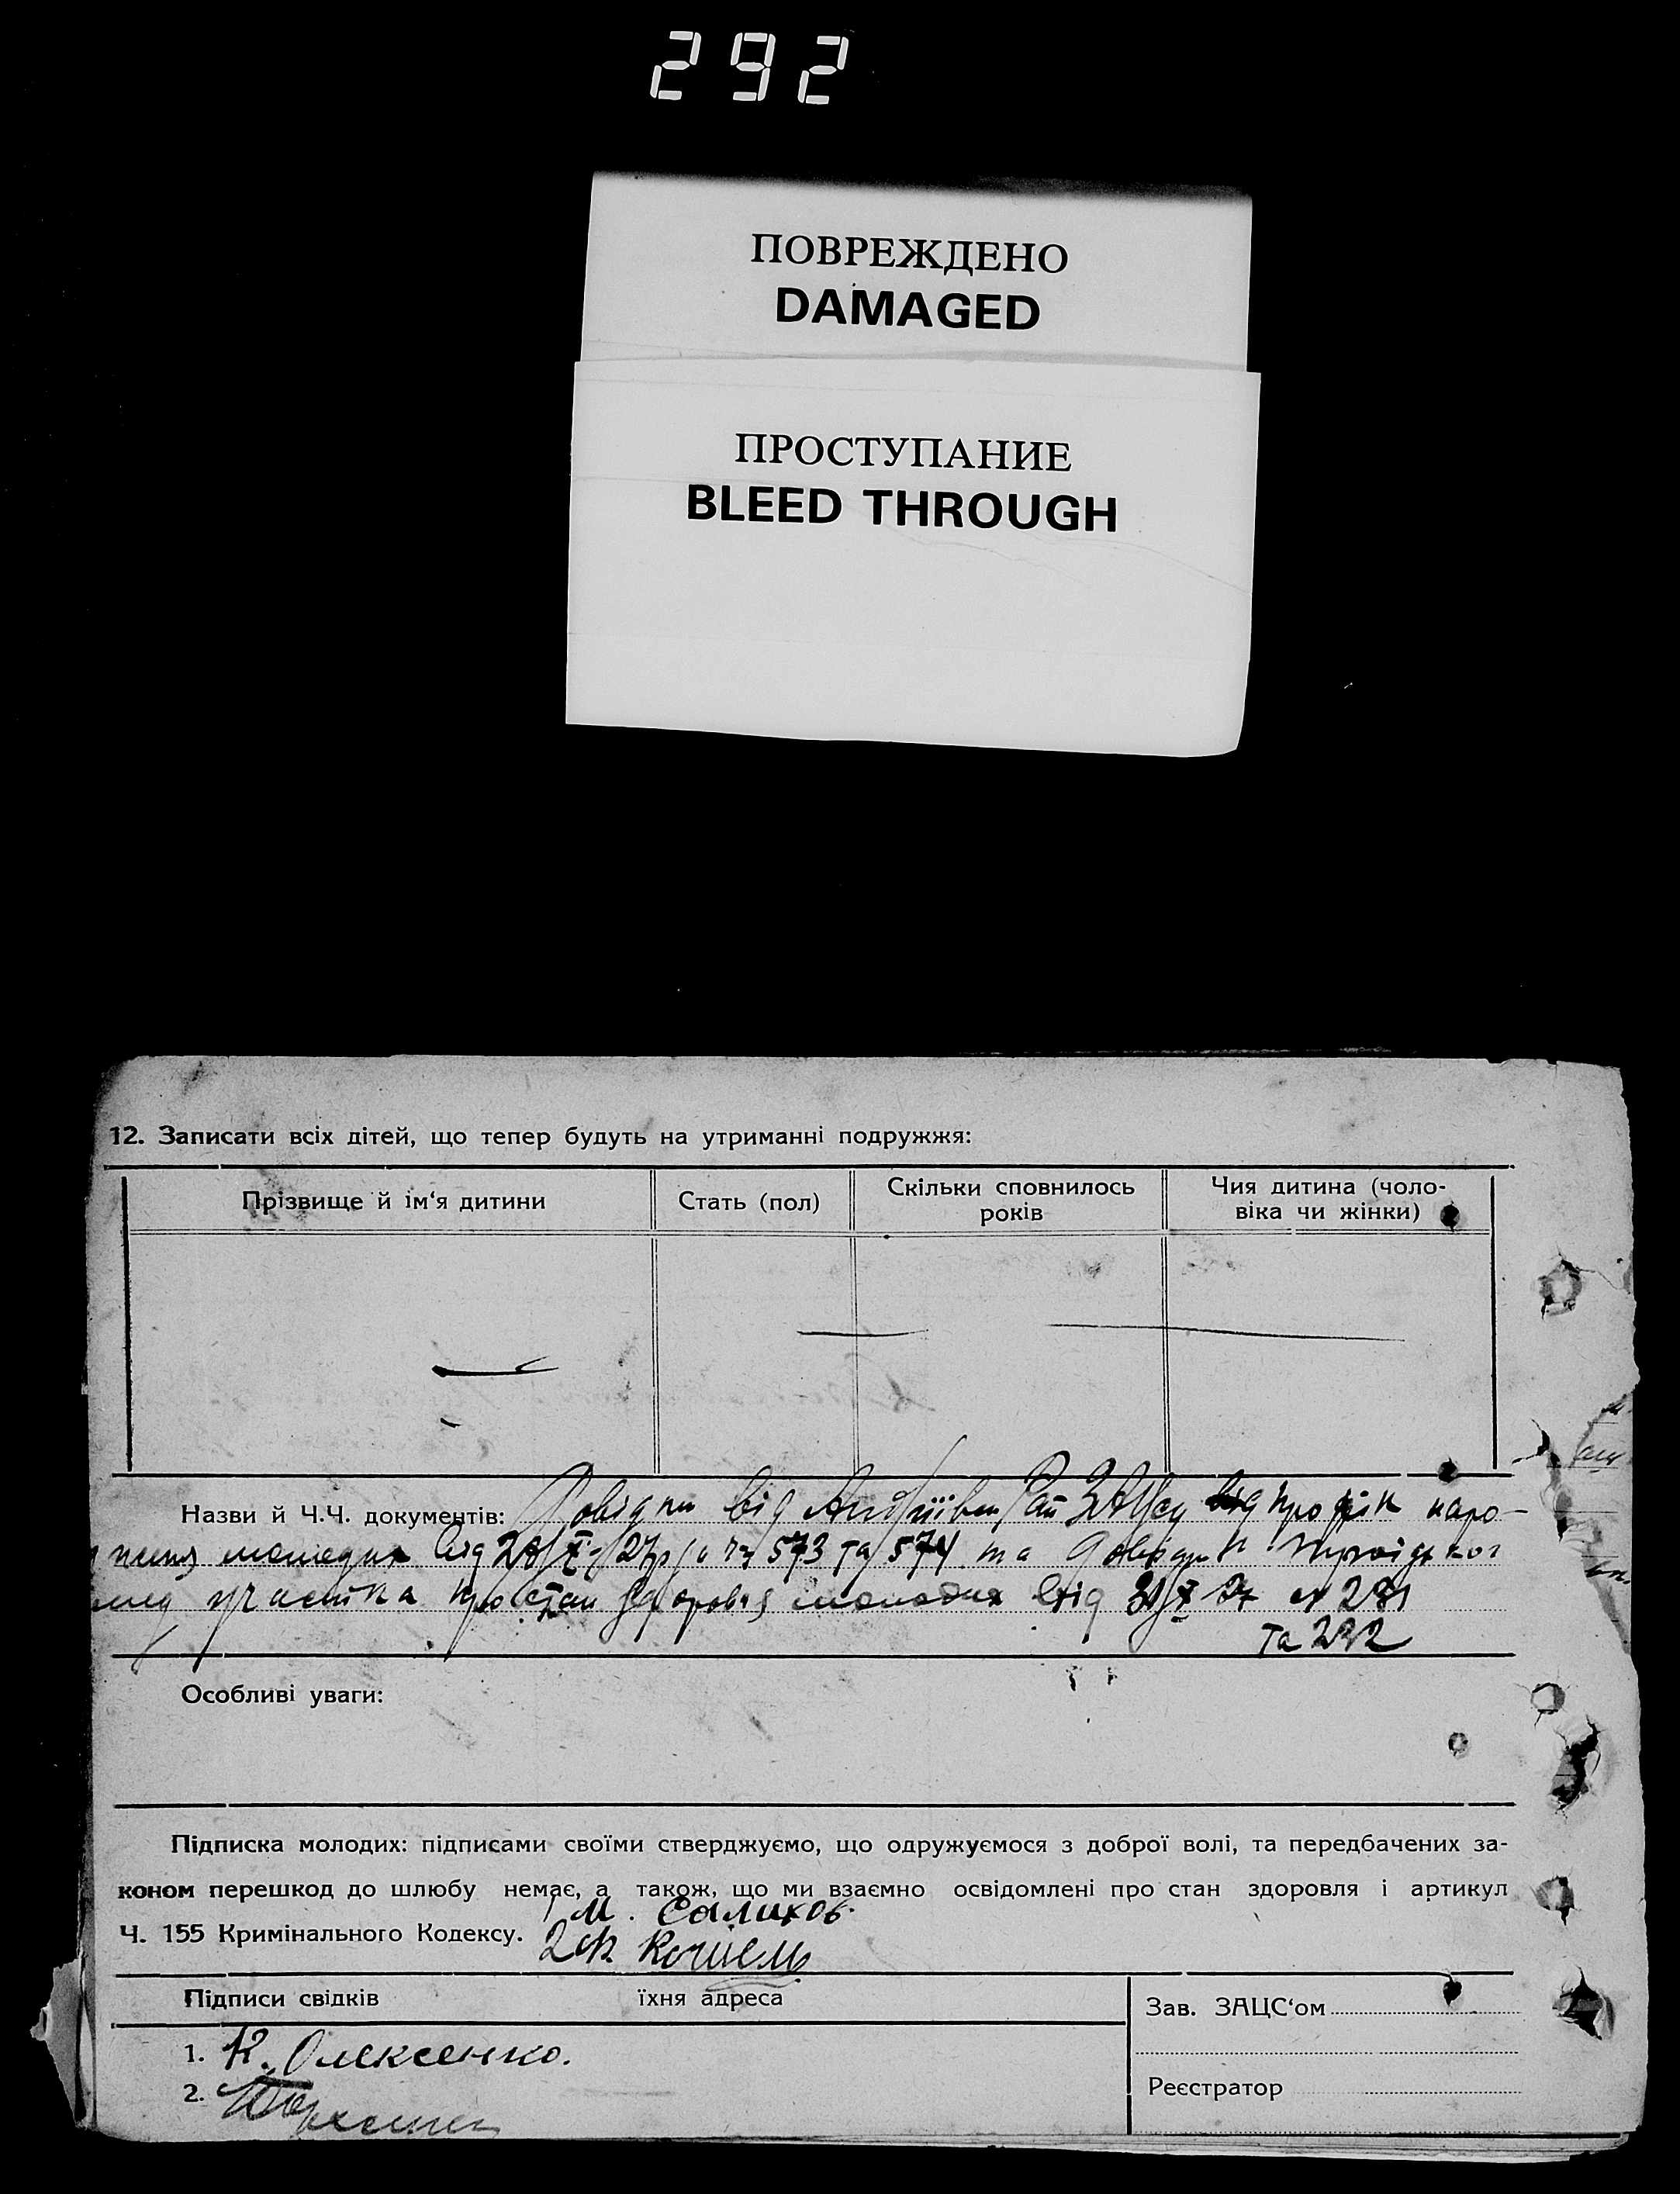 292
ПОВРЕЖДЕНО
DAMAGED
ПРОСТУПАНИЕ
BLEED THROUGH
12. Записати всіх дітей, що тепер будуть на утриманні подружжя:
Прізвище й ім‘я дитини
Стать (пол)
Скільки сповнилось
років
Чия дитина (чоло-
віка чи жінки)
Назви й Ч.Ч. документів: Довідки від ЗАЦсу про рік наро-
молодих від 573 та 574 та
мед участка про стан здоровья молодих від 31/X 27 № 231
та 232
Особливі уваги:
Підписка молодих: підписами своїми стверджуємо, що одружуємося з доброї волі, та передбачених за-
коном перешкод до шлюбу немає, а також, що ми взаємно освідомлені про стан здоровля і артикул
1 М. Салихов.
Ч. 155 Кримінального Кодексу.
2
Підписи свідків
їхня адреса
Зав. ЗАЦС‘ом
1. К. Олексенко.
2.
Реєстратор